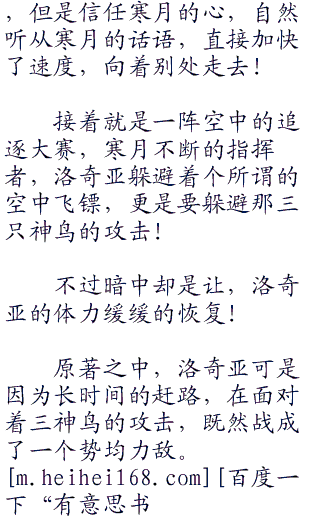 ，但是信任寒月的心，自然
听从寒月的话语，直接加快
了速度，向着别处走去！
接着就是一阵空中的追
逐大赛，寒月不断的指挥
者，洛奇亚躲避着个所谓的
空中飞镖，更是要躲避那三
只神鸟的攻击！
不过暗中却是让，洛奇
亚的体力缓缓的恢复！
原著之中，洛奇亚可是
因为长时间的赶路，在面对
着三神鸟的攻击，既然战成
了一个势均力敌。
[m.heihei168.com][百度一
下“有意思书